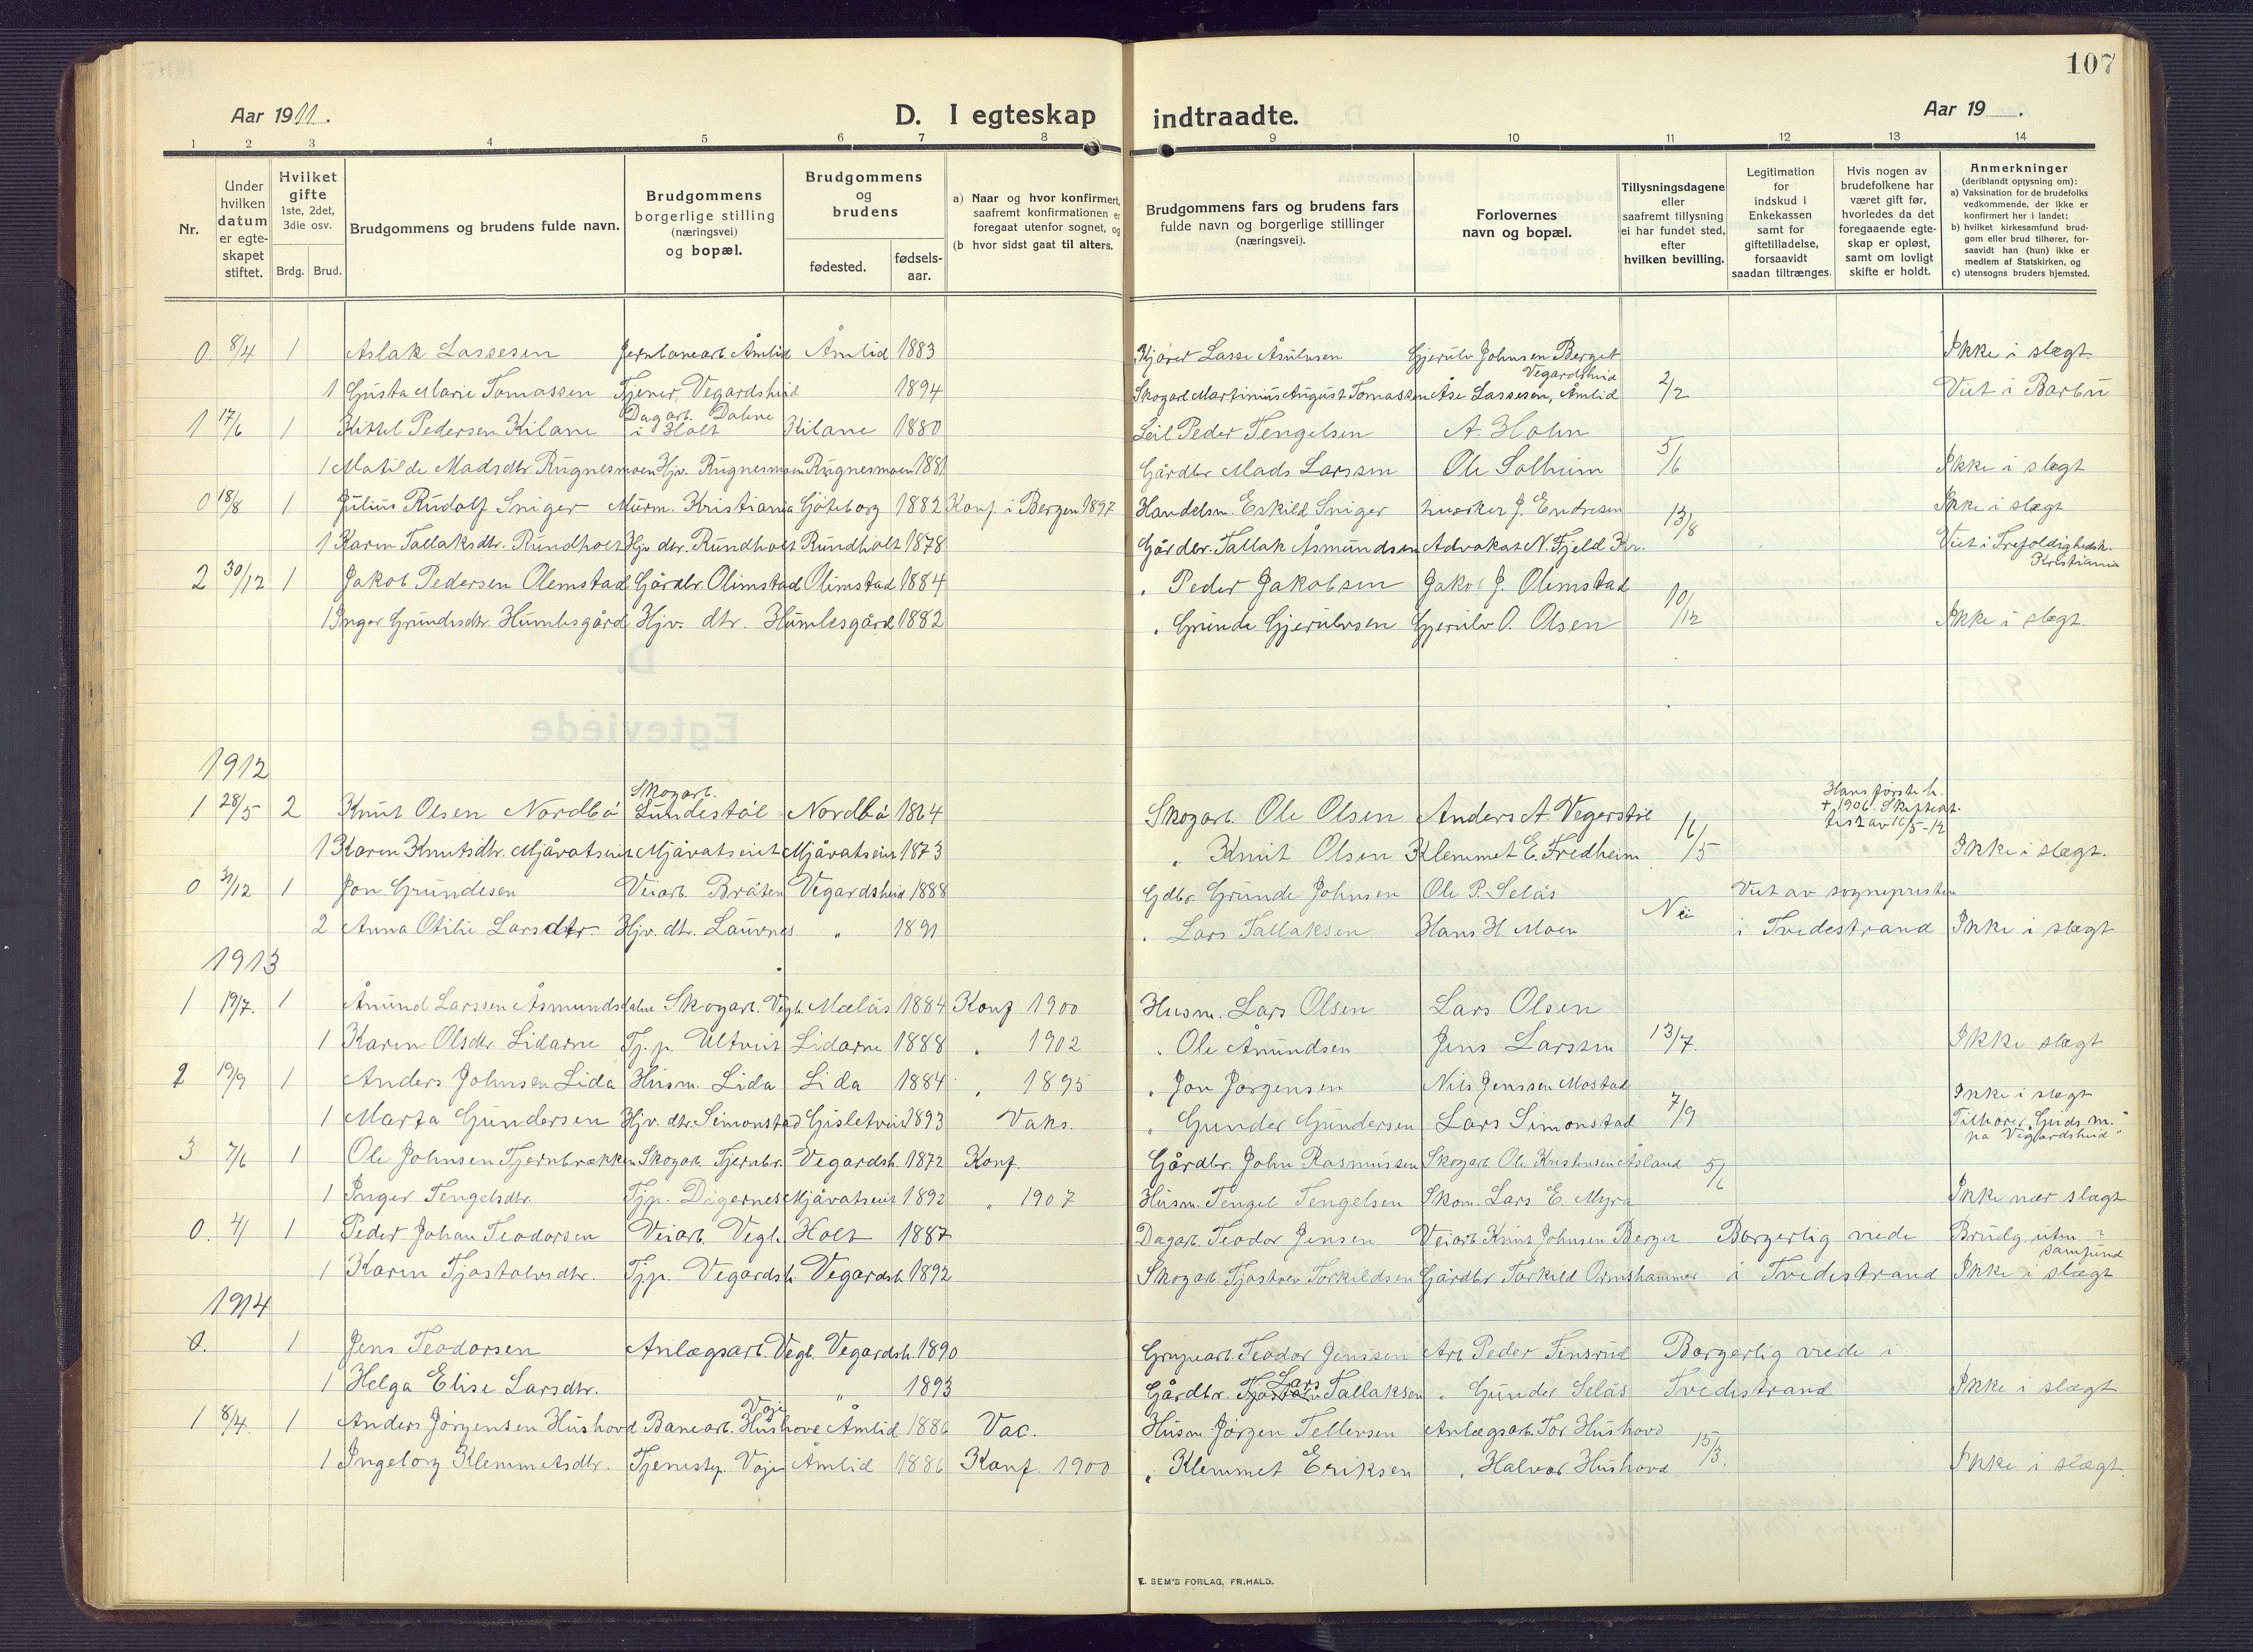 107
Aar 1911.
D. I egteskap indtraadte.
Aar 19 .
1 2 3 4 5 6 7 8 9 10 11 12 13 14
Nr.
Under hvilken datum er egte-skapet stiftet.
Hvilket gifte 1ste, 2det, 3die osv.
Brdg. Brud.
Brudgommens og brudens fulde navn.
Brudgommens borgerlige stilling (næringsvei) og bopæl.
Brudgommens og brudens
fødested.
fødsels-aar.
a) Naar og hvor konfirmert, saafremt konfirmationen er foregaat utenfor sognet, og
(b hvor sidst gaat til alters.
Brudgommens fars og brudens fars fulde navn og borgerlige stillinger (næringsvei).
Forlovernes navn og bopæl.
Tillysningsdagene eller saafremt tillysning ei har fundet sted, efter hvilken bevilling.
Legitimation for indskud i Enkekassen samt for giftetilladelse, forsaavidt saadan tiltrænges.
Hvis nogen av brudefolkene har været gift før, hvorledes da det foregaaende egte-skap er opløst, samt om lovligt skifte er holdt.
Anmerkninger
(deriblandt oplysning om):
a) Vaksination for de brudefolks vedkommende, der ikke er konfirmert her i landet;
b) hvilket kirkesamfund brud-gom eller brud tilhører, for-saavidt han (hun) ikke er medlem af Statskirken, og
c) utensogns bruders hjemsted.
0 8/4 1 Aslak Lassesen Jernbanearb. Åmlid Åmlid 1883 Kjører Lasse Åsulvsen Gjerulv Johnsen Berget Vegardsheid Ikke i slægt.
1 Gusta Marie Tomassen Tjener, Vegardsheid 1894 Skogarb. Martinius August Tomassen Åse Lassesen, Åmlid 2/2 Viet i Barbu
1 17/6 1 Kittel Pedersen Kilane Dagarb. Dalene i Holt Kilane 1880 Leil. Peder Tengelsen A. Holm
1 Matilde Madsdtr. Rugnesmoen Hjv. Rugnesmoen Rugnesmoen 1881 Gårdbr. Mads Larssen Ole Solheim 5/6 Ikke i slægt
0 18/8 1 Julius Rudolf Sniger Murm. Kristiania Göteborg 1882 Konf. i Bergen 1897 Handelsm. Eskild Sniger J. Endresen Ikke i slægt
1 Karen Tallaksdtr. Rundholt Hjv. dtr. Rundholt Rundholt 1878 Gårdbr. Tallak Åsmundsen Advokat N. Fjeld Kr. 13/8 Viet i Trefoldighedsk. Kristiania
2 30/12 1 Jakob Pedersen Olemstad Gårdbr. Olimstad Olimstad 1884 „ Peder Jakobsen Jakob J. Olimstad
1 Inger Grundesdtr. Humlesgård Hjv. dtr. Humlesgård 1882 „ Grunde Gjerulvsen Gjerulv O. Olsen 10/12 Ikke i slægt.
1912
1 28/5 2 Knut Olsen Nordbø Skogarb. Lundestøl Nordbø 1864 Skogarb. Ole Olsen Anders A. Vegerstøl Hans første h. † 1906. Skifteat-test av 10/5-12
1 Karen Knutsdtr. Mjåvatseiet Mjåvatseiet Mjåvatseiet 1873 „ Knut Olsen Klemmet E. Fredheim 16/5 Ikke i slægt.
0 31/12 1 Jon Grundesen Veiarb. Bråten Vegardsheid 1888 Gdbr. Grunde Johnsen Ole P. Selås Viet av sognepresten
2 Anna Otilie Larsdtr. Hjv. dtr. Laurnes „ 1891 „ Lars Tallaksen Hans H. Moen Nei i Tvedestrand Ikke i slægt
1913
1 19/7. 1 Ånund Larssen Åsmundsdalen Skogarb. Vegh. Mælås 1884 Konf 1900 Husm. Lars Olsen Lars Olsen
1 Karen Olsdtr. Lidarne Tj. p. Ultveit Lidarne 1888 „ 1902 „ Ole Ånundsen Jens Larssen 13/7. Ikke slægt
2 19/9 1 Anders Johnsen Lida Husm. Lida Lida 1884 „ 1895 „ Jon Jørgensen Nils Jenssen Mostad Ikke i slægt
1 Marta Gundersen Hjv. dtr. Simonstad Gisletveit 1893 Vaks. „ Gunder Gundersen Lars Simonstad 7/9 Tilhører „Guds m. på Vegårdsheid"
3 7/6 1 Ole Johnsen Tjernbrækken Skogarb. Tjernbr. Vegardsh. 1872 Konf. Gårdbr. John Rasmussen Skogarb. Ole Kristensen Åsland 5/6
1 Inger Tengelsdtr. Tjp. Digernes Mjåvatseiet 1892 „ 1907 Husm. Tengel Tengelsen Skom. Lars E. Myra Ikke nær slægt
0. 4/ 1 Peder Johan Teodorsen Veiarb. Vegh Holt 1887 Dagarb. Teodor Jensen Veiarb. Knut Johnsen Berget Borgerlig viede Brudg. uten samfund
1 Karen Tjostolvsdtr. Tjp. Vegardsh. Vegardsh. 1892 Skogarb. Tjostolv Torkildsen Gårdbr. Torkild Ormshammer i Tvedestrand Ikke i slægt
1914
0. 1 Jens Teodorsen Anlægsarb. Vegh. Vegardsh. 1890 Grupearb. Teodor Jensen Arb. Peder Tinsrud Borgerlig viede i
1 Helga Elise Larsdtr. „ 1893 Gårdbr. Lars Tallaksen „ Gunder Selås Tvedestrand Ikke i slægt
1 8/4. 1 Anders Jørgensen Hushovd Banearb. Voje Hushovd Åmlid 1886 Vac. Husm. Jørgen Tellevsen Anlægsarb. Tor Hushovd
1 Ingeborg Klemmetsdtr. Tjenestp. Voje Åmlid 1886 Konf. 1900 „ Klemmet Eriksen „ Halvor Hushovd 15/3. Ikke i slægt.
E. SEM'S FORLAG, FR.HALD.